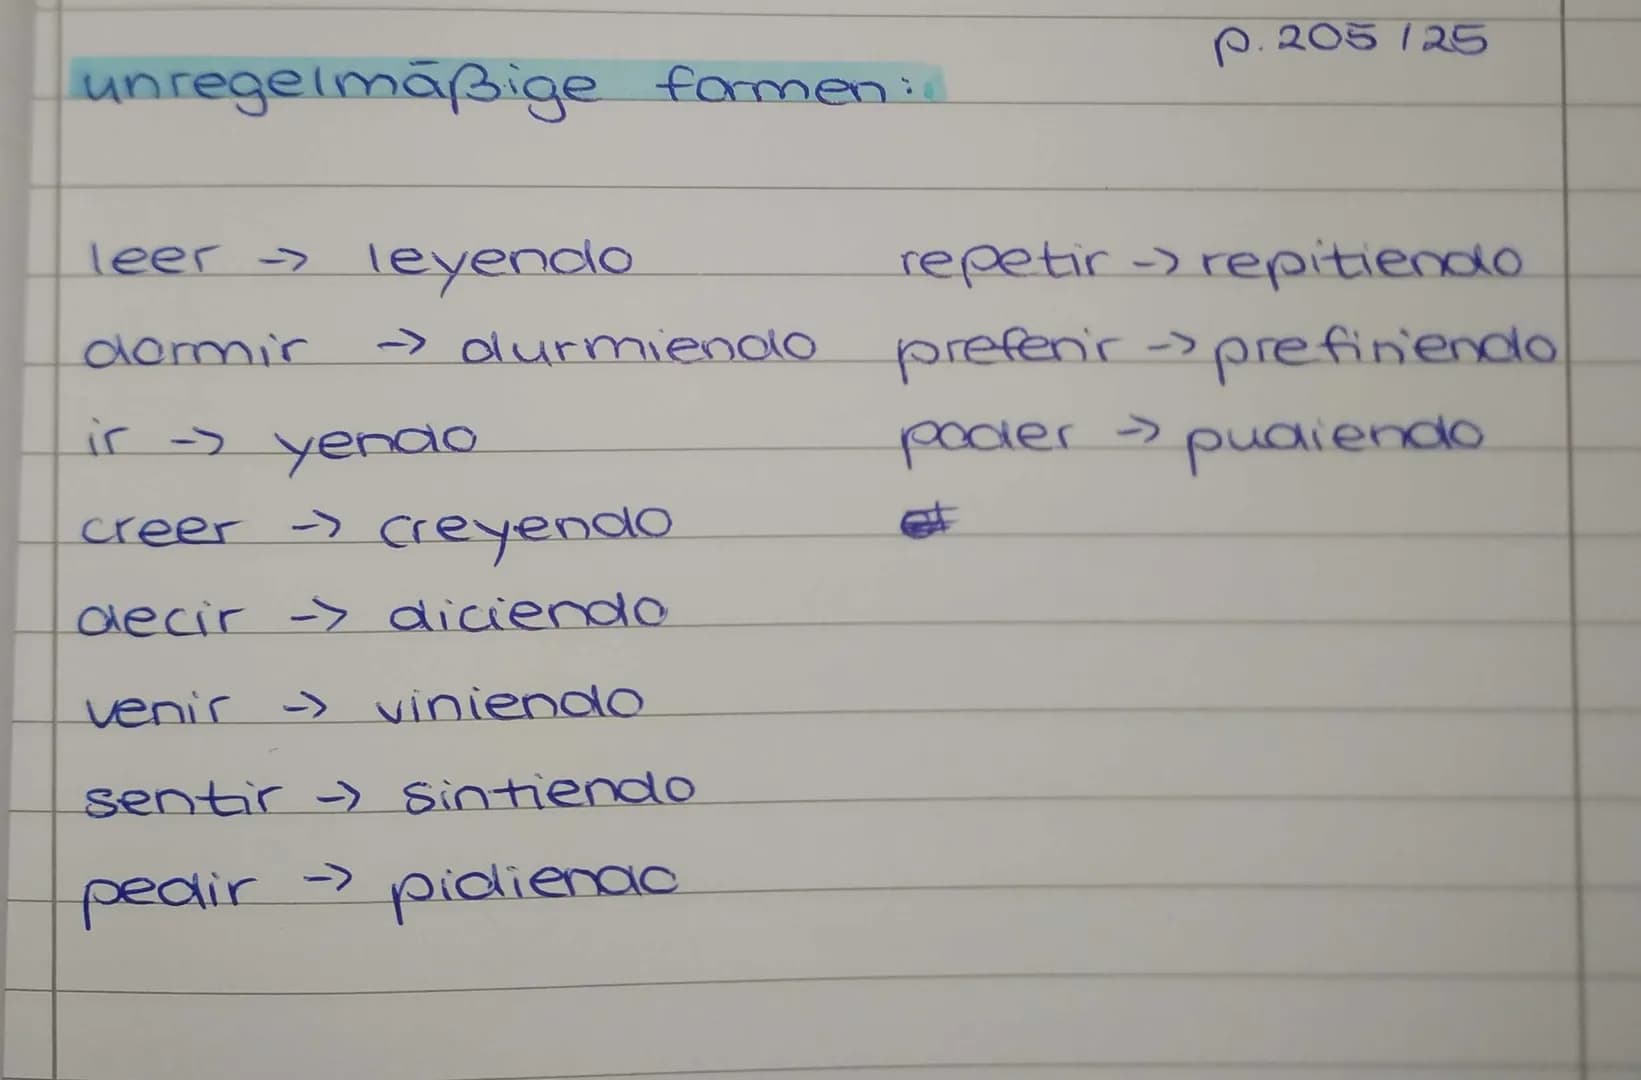 p. 205 / 25
unregelmäßige formen:
leer -> leyendo
dormir -> durmiendo
ir -> yendo
creer -> creyendo
decir -> diciendo
venir -> viniendo
sentir -> sintiendo
pedir -> pidiendo
repetir -> repitiendo
preferir -> prefiriendo
poder -> pudiendo